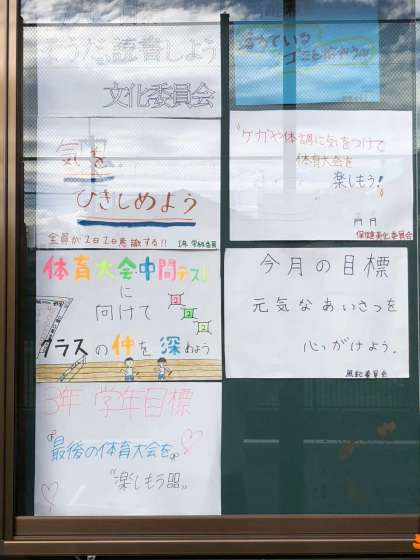 そうだ、読書しよう
文化委員会
気を
ひきしめよう
全員が1日1日意識する!!
1年 学級委員
体育大会中間テスト
に
向けて
クラスの仲を深めよう
3年 学年目標
最後の体育大会を
"楽しもう
落ちている
ゴミを拾おう
ケガや体調に気をつけて
体育大会を
楽しもう!
保健美化委員会
今月の目標
元気なあいさつを
心がけよう。
風紀委員会